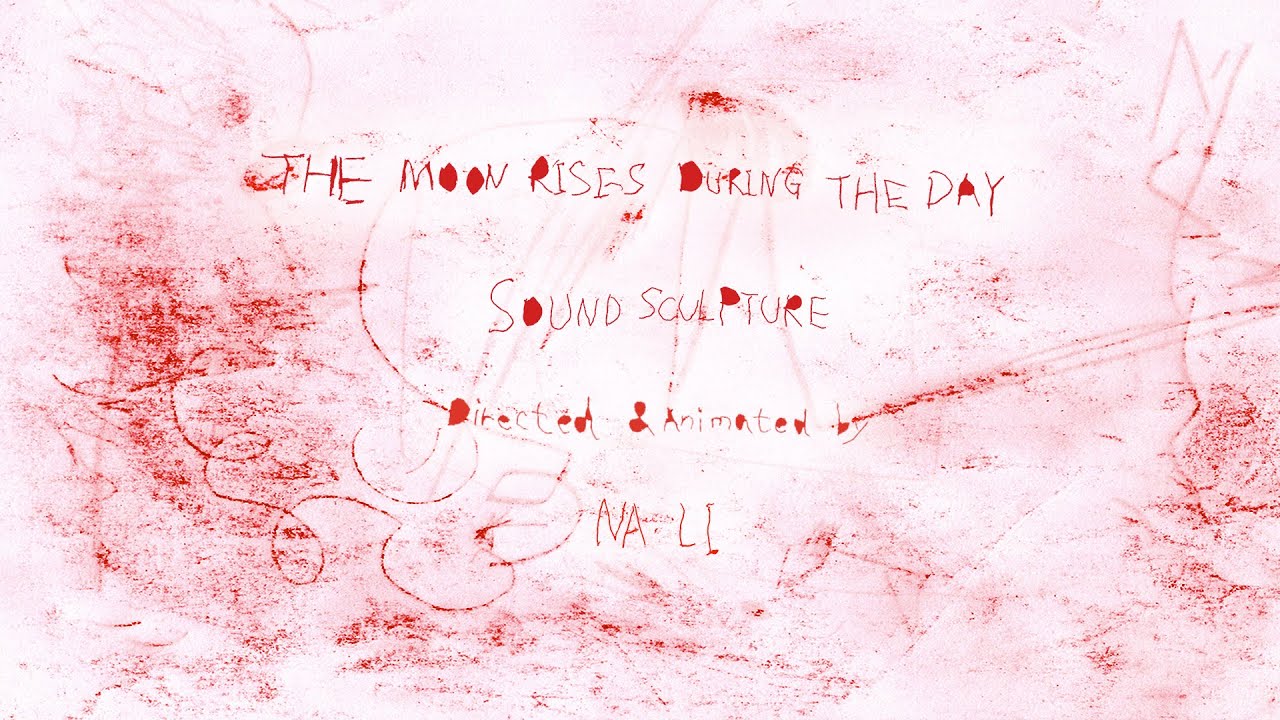 THE MOON RISES DURING THE DAY
SOUND SCULPTURE
Directed & Animated by
NA LI